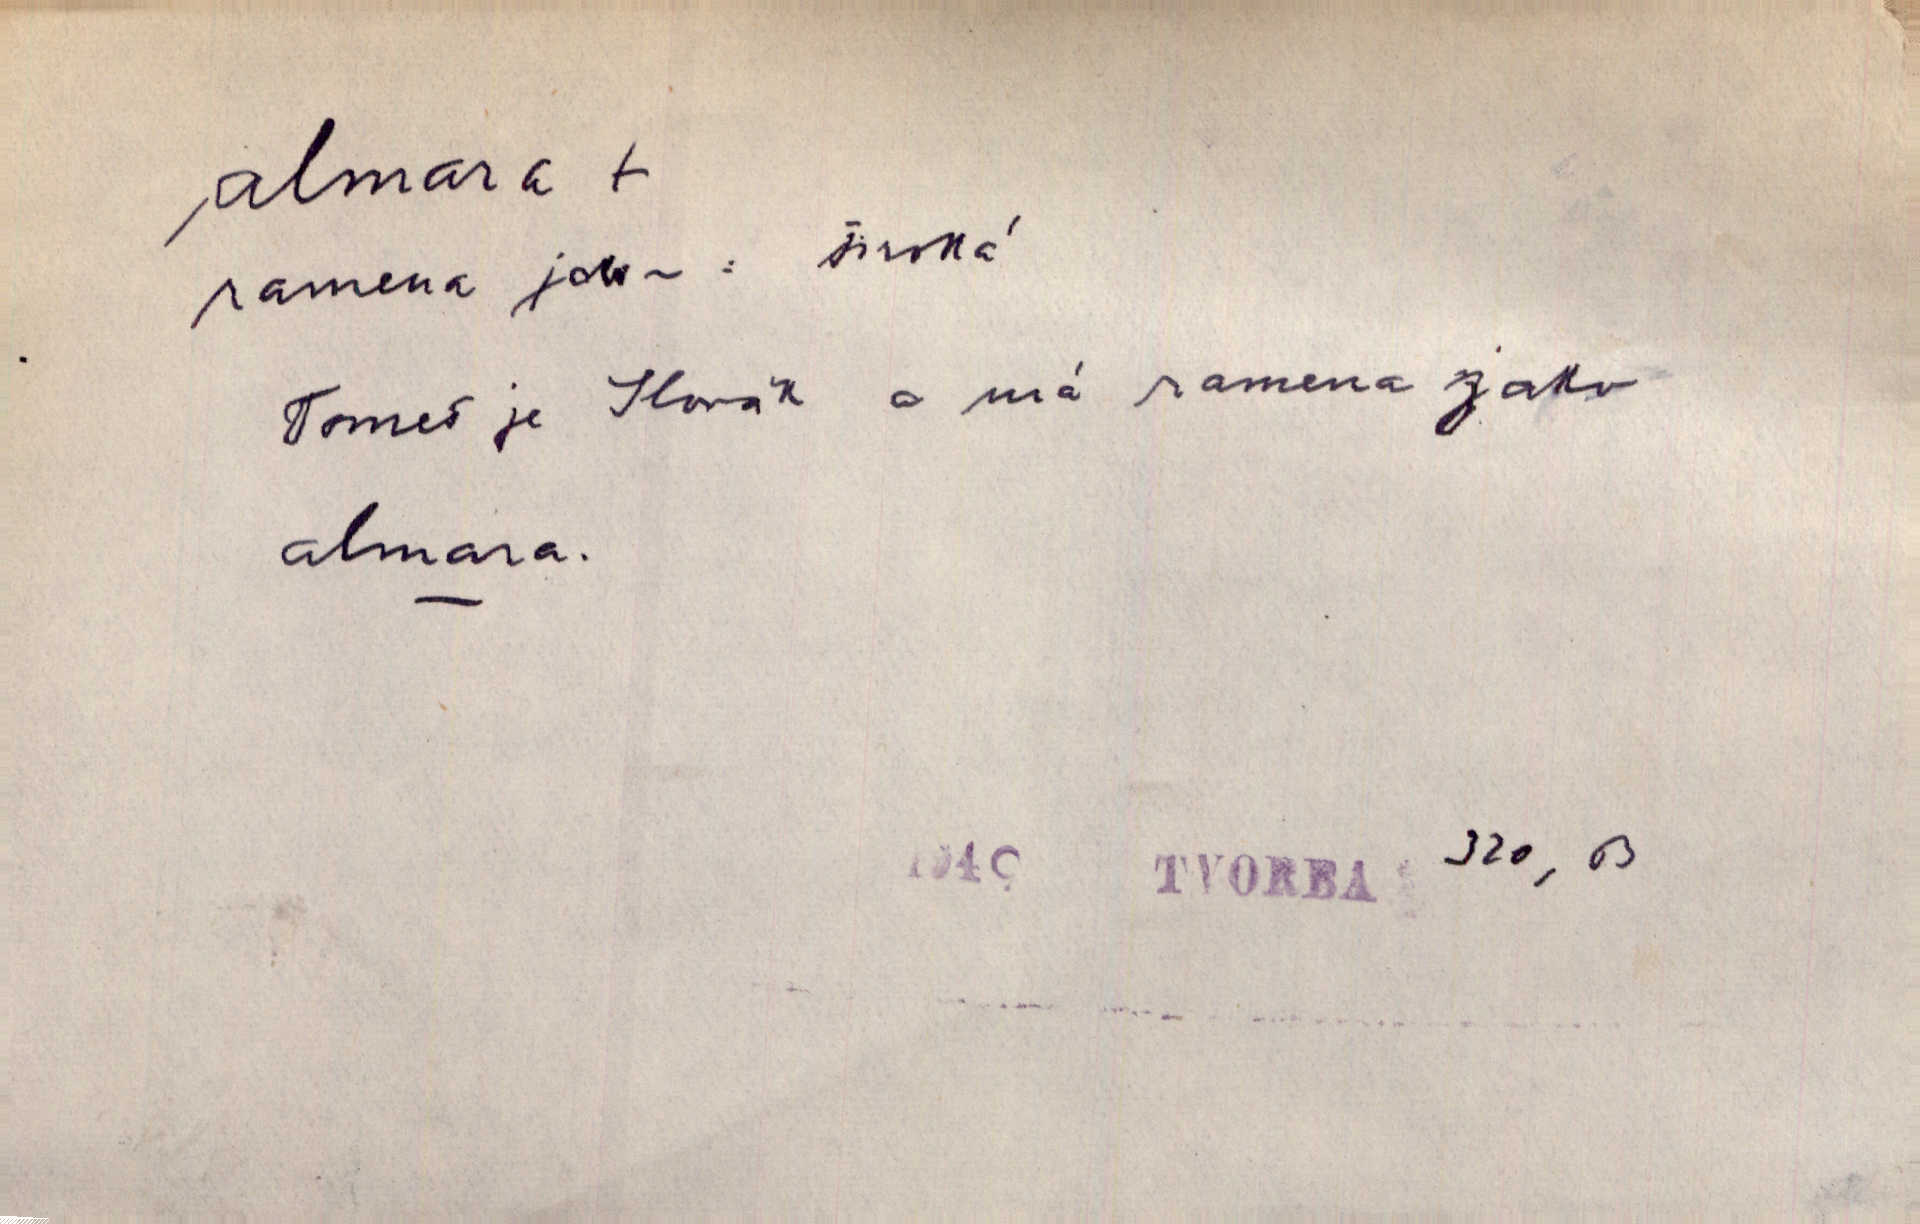 almara +
ramena jako ~ : široká
Tomeš je Slovák a má ramena jako
almara.
1949 TVORBA 320, B